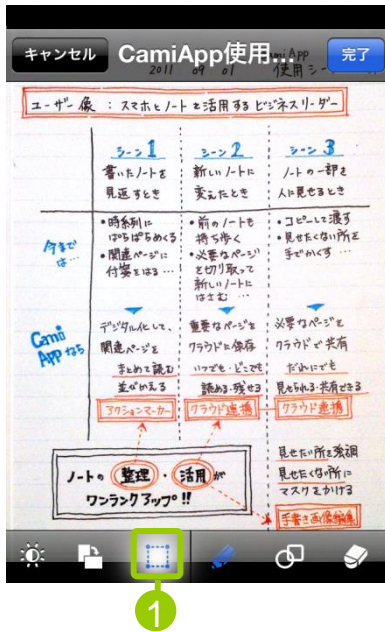 キャンセル CamiApp使用... 完了
CamiApp
2011 09 01 使用シーン
ユーザー像 : スマホとノートを活用するビジネスリーダー
シーン1
書いたノートを
見返すとき
シーン2
新しいノートに
変えたとき
シーン3
ノートの一部を
人に見せるとき
今までは…
•時系列に
ぱらぱらめくる
•関連ページに
付箋をはる…
•前のノートも
持ち歩く
•必要なページ
を切り取って
新しいノートに
はさむ…
•コピーして渡す
•見せたくない所を
手でかくす…
Cami
Appなら
デジタル化して、
関連ページを
まとめて読む
並べかえる
アクションマーカー
重要なページを
クラウドに保存
いつでも・どこでも
読める・残せる
クラウド連携
必要なページを
クラウドで共有
だれにでも
見せられる・共有できる
クラウド連携
見せたい所を強調
見せたくない所に
マスクをかける
手書き画像編集
ノートの 整理 ・ 活用 が
ワンランクアップ!!
1